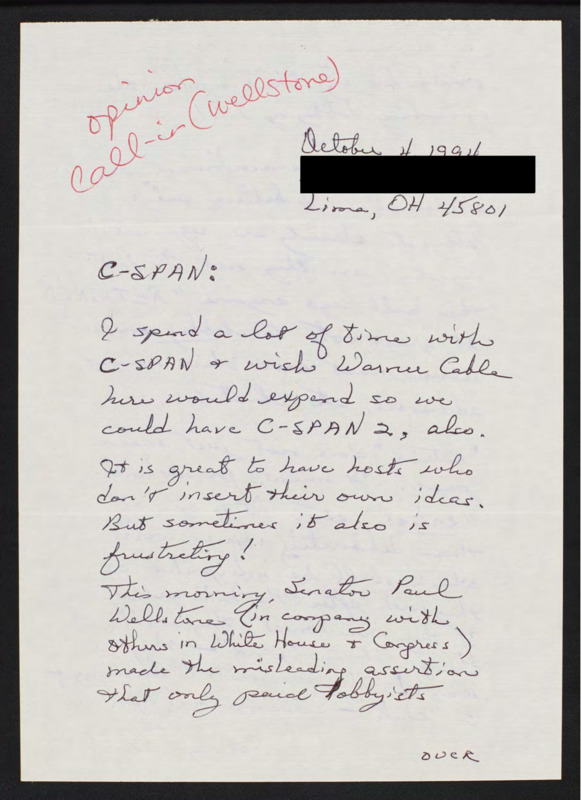 opinion
Call-in (Wellstone)
October 4 1994
Lima, OH 45801
C-SPAN:
I spend a lot of time with
C-SPAN & wish Warner Cable
here would expand so we
could have C-SPAN 2, also.
It is great to have hosts who
don't insert their own ideas.
But sometimes it also is
frustrating!
This morning, Senator Paul
Wellstone (in company with
others in White House & Congress)
made the misleading assertion
that only paid lobbyists
OVER